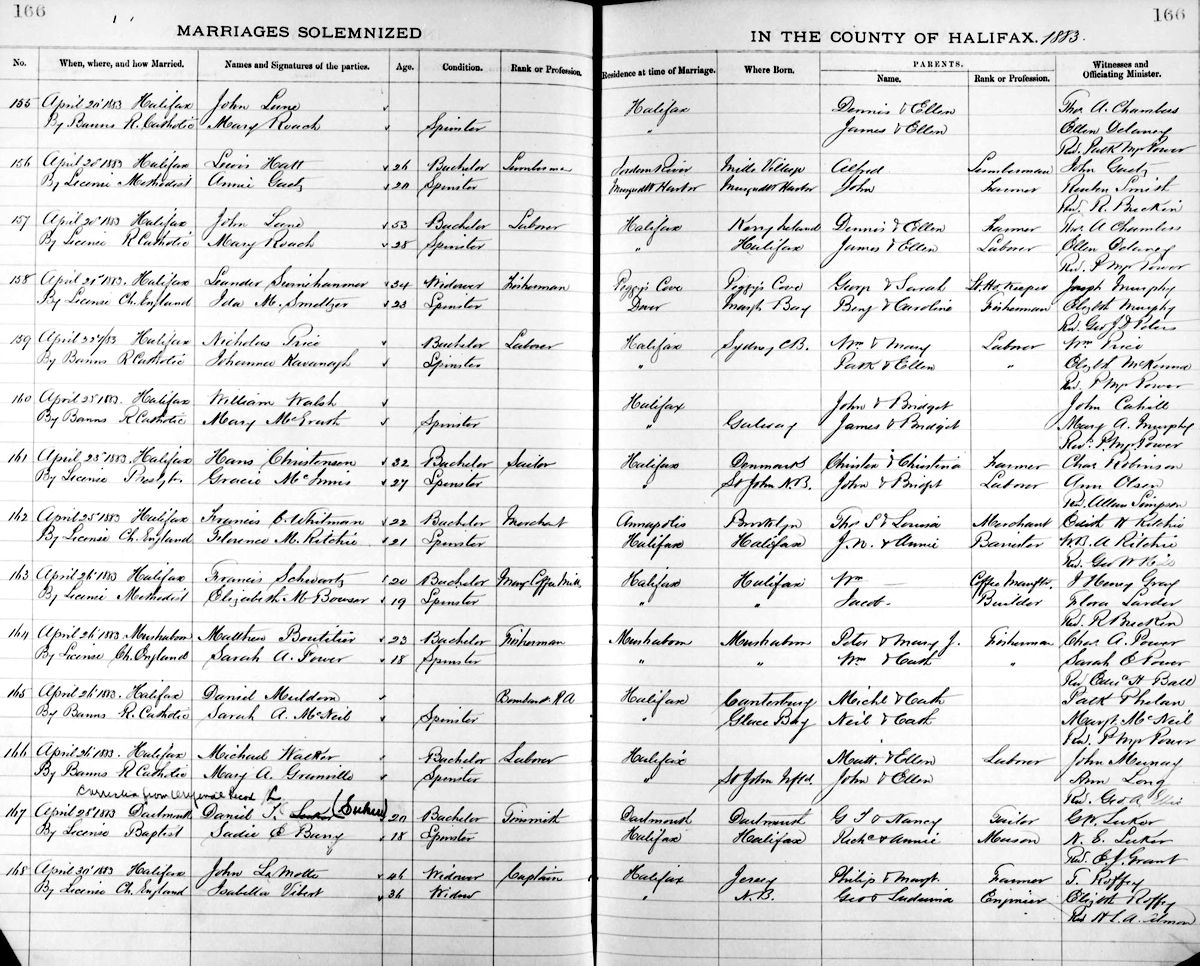 166
166
MARRIAGES SOLEMNIZED
IN THE COUNTY OF HALIFAX. 1883.
No. When, where, and how Married. Names and Signatures of the parties. Age. Condition. Rank or Profession. Residence at time of Marriage. Where Born. PARENTS. Name. Rank or Profession. Witnesses and Officiating Minister.
155 April 20th 1883 Halifax John Lune Halifax Dennis & Ellen Thos. A. Chambers
By Banns R. Catholic Mary Roach Spinster " James & Ellen Ellen Delaney
Rev. Patk Mp Power
156 April 20th 1883 Halifax Lewis Hatt 26 Bachelor Lumberman Jordan River Mill Village Alfred Lumberman John Gaetz
By License Methodist Annie Gaetz 20 Spinster Musqudbt Harbor Musqudbt Harbor John Farmer Reuben Smith
Rev. R. Breckin
157 April 20th 1883 Halifax John Lune 53 Bachelor Laborer Halifax Kerry Ireland Dennis & Ellen Farmer Thos. A Chambers
By License R Catholic Mary Roach 28 Spinster " Halifax James & Ellen Laborer Ellen Delaney
Rev. P. Mp Power
158 April 21st 1883. Halifax Leander 24 Widower Fisherman Peggy's Cove Peggy's Cove George & Sarah Lt. Ho. Keeper Joseph Murphy
By License Ch. England Ida M. Smeltzer 23 Spinster Dover Marsh Bay Benj & Caroline Fisherman Elizbth Murphy
Rev. Geo J D Peters
159 April 22nd/83 Halifax Nicholas Price Bachelor Laborer Halifax Sydney C.B. Wm & Mary Laborer Wm Price
By Banns R Catholic Johanna Kavanagh Spinster " Patk & Ellen " Elizbth McKenna
Rev. P. Mp Power
160 April 25th 1883. Halifax William Walsh Halifax John & Bridget John Cahill
By Banns R Catholic Mary McGrath Spinster " Galway James & Bridget Mary A. Murphy
Rev. P. Mp Power
161 April 25th 1883. Halifax Hans Christenson 32 Bachelor Sailor Halifax Denmark Christen & Christina Farmer Chas Robinson
By License Presbytr. Gracie McInnis 27 Spinster " St John N.B. John & Bridget Laborer Ann Olsen
Rev. Allan Simpson
162 April 25th 1883 Halifax Francis C. Whitman 22 Bachelor Merchant Annapolis Brooklyn Thos S & Louisa Merchant H Ritchie
By License Ch. England Florence M. Ritchie 21 Spinster Halifax Halifax J. N. & Annie Barister W.B. A Ritchie
Rev. Geo W Hill
163 April 26th 1883 Halifax Francis Schwartz 20 Bachelor Halifax Halifax Wm Coffee Manftr. J Henry Gray
By License Methodist Elizabeth M Bowser 19 Spinster " " Jacob Builder Flora Larder
Rev. R. Breckin
164 April 26th 1883 Mushaboon Matthew Boutilier 23 Bachelor Fisherman Mushaboon Mushaboon Peter & Mary J. Fisherman Chas. A. Power
By License Ch. England Sarah A. Power 18 Spinster " " Wm & Cath " Sarah E Power
Rev. H Ball
165 April 26th 1883. Halifax Daniel Muldoon Bombardr R A Halifax Canterbury Michl & Cath Patk Phelan
By Banns R. Catholic Sarah A. McNeil Spinster " Glace Bay Neil & Cath Margt. McNeil
Rev. P Mp Power
166 April 26th 1883. Halifax Michael Wacker Bachelor Laborer Halifax Matt. & Ellen Laborer John Murray
By Banns R Catholic Mary A. Granville Spinster " St John Nfld. John & Ellen Ann Long
Rev. Geo A
Correction from Original Record
167 April 28th 1883 Dartmouth Daniel T. Luker 20 Bachelor Tinsmith Dartmouth Dartmouth G T & Nancy Tailor G.W. Luker
By License Baptist Sadie E Barry 18 Spinster Halifax Halifax Richd & Annie Mason N. E. Luker
Rev. E J. Grant
168 April 30th 1883 Halifax John La Motte 46 Widower Captain Halifax Jersey Philip & Margt. Farmer T. Roffey
By License Ch. England Isabella Vibert 36 Widow " N.B. Geo & Engineer Elizbth Roffey
Rev H L. A. Almon